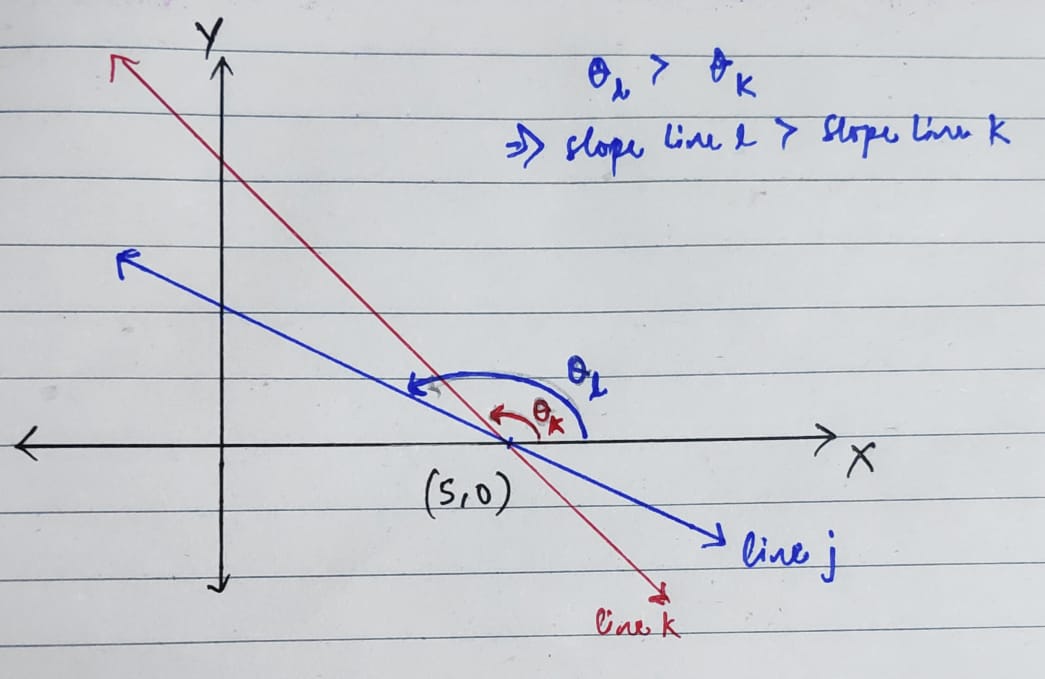 Y
θ_l > θ_k
⇒ slope line l > slope line k
θ_l
θ_k
X
(5,0)
line j
line k